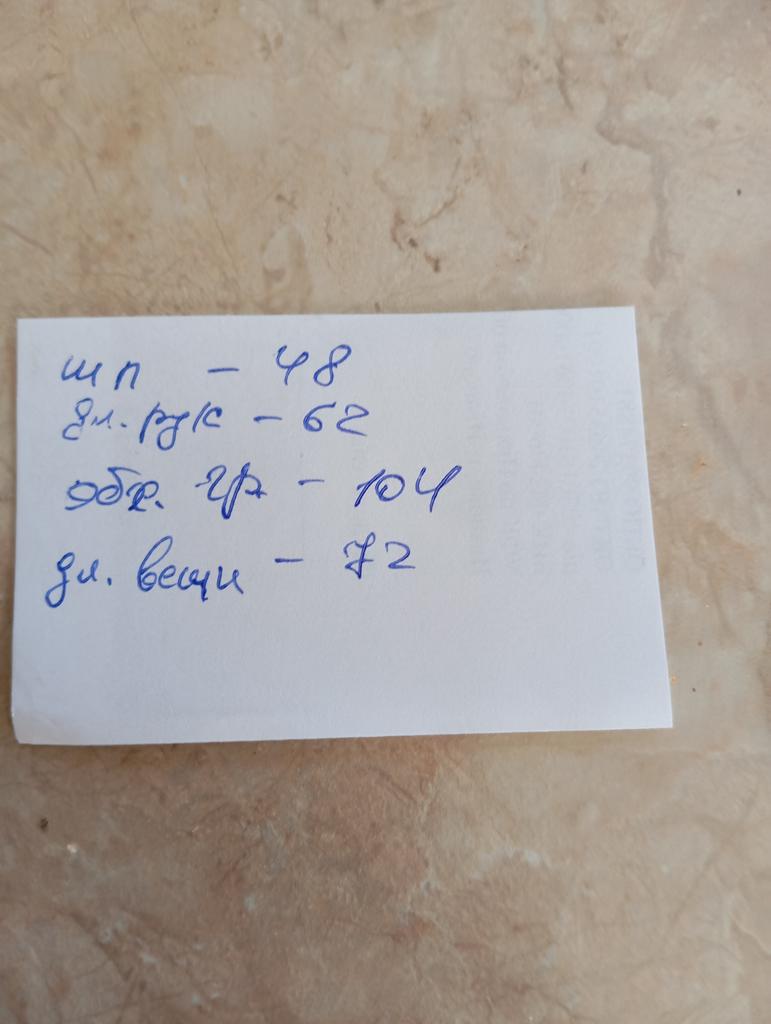 шп - 48
дл. рук - 62
обх. гр - 104
дл. вещи - 72